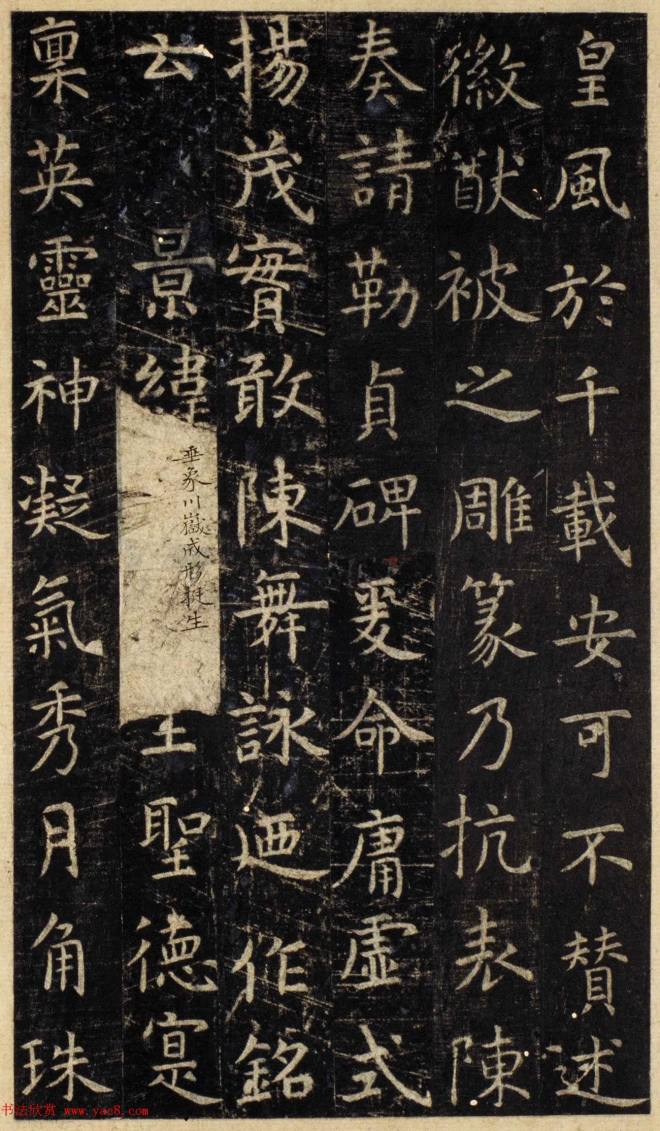 皇風於千載安可不赞述
徽猷被之雕篆乃抗表陳
奏請勒貞碑爰命庸虚式
揚茂實敢陳舞詠廼作銘
云景緯
垂象川嶽成形挺生
王聖德寔
稟英靈神凝氣秀月角珠
书法欣赏 www.yac8.com